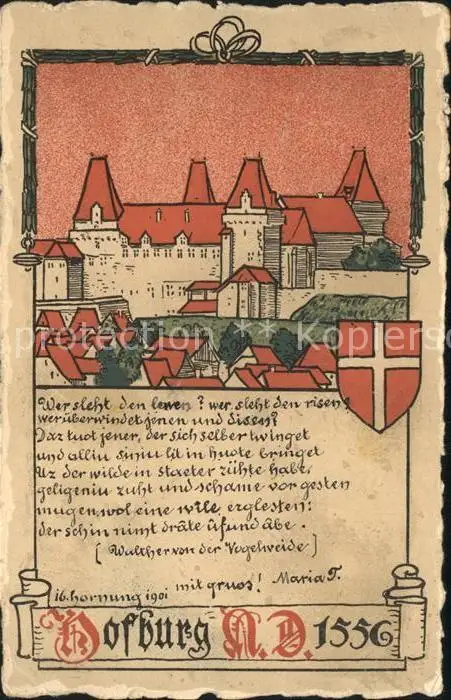 protection ** Kopiersch
Wer sleht den lewen? wer sleht den risen?
wer überwindet jenen und disen?
Daz tuot jener, der sich selber twinget
und alliu siniu lit in huote bringet
Uz der wilde in staeter zühte habe.
geligeniu zuht und schame vor gesten
mugen wol eine wile erglesten:
der schin nimt drâte ûf und abe.
[Walther von der Vogelweide]
mit gruos! Maria T.
16. hornung 1901
Hofburg A. D. 1556